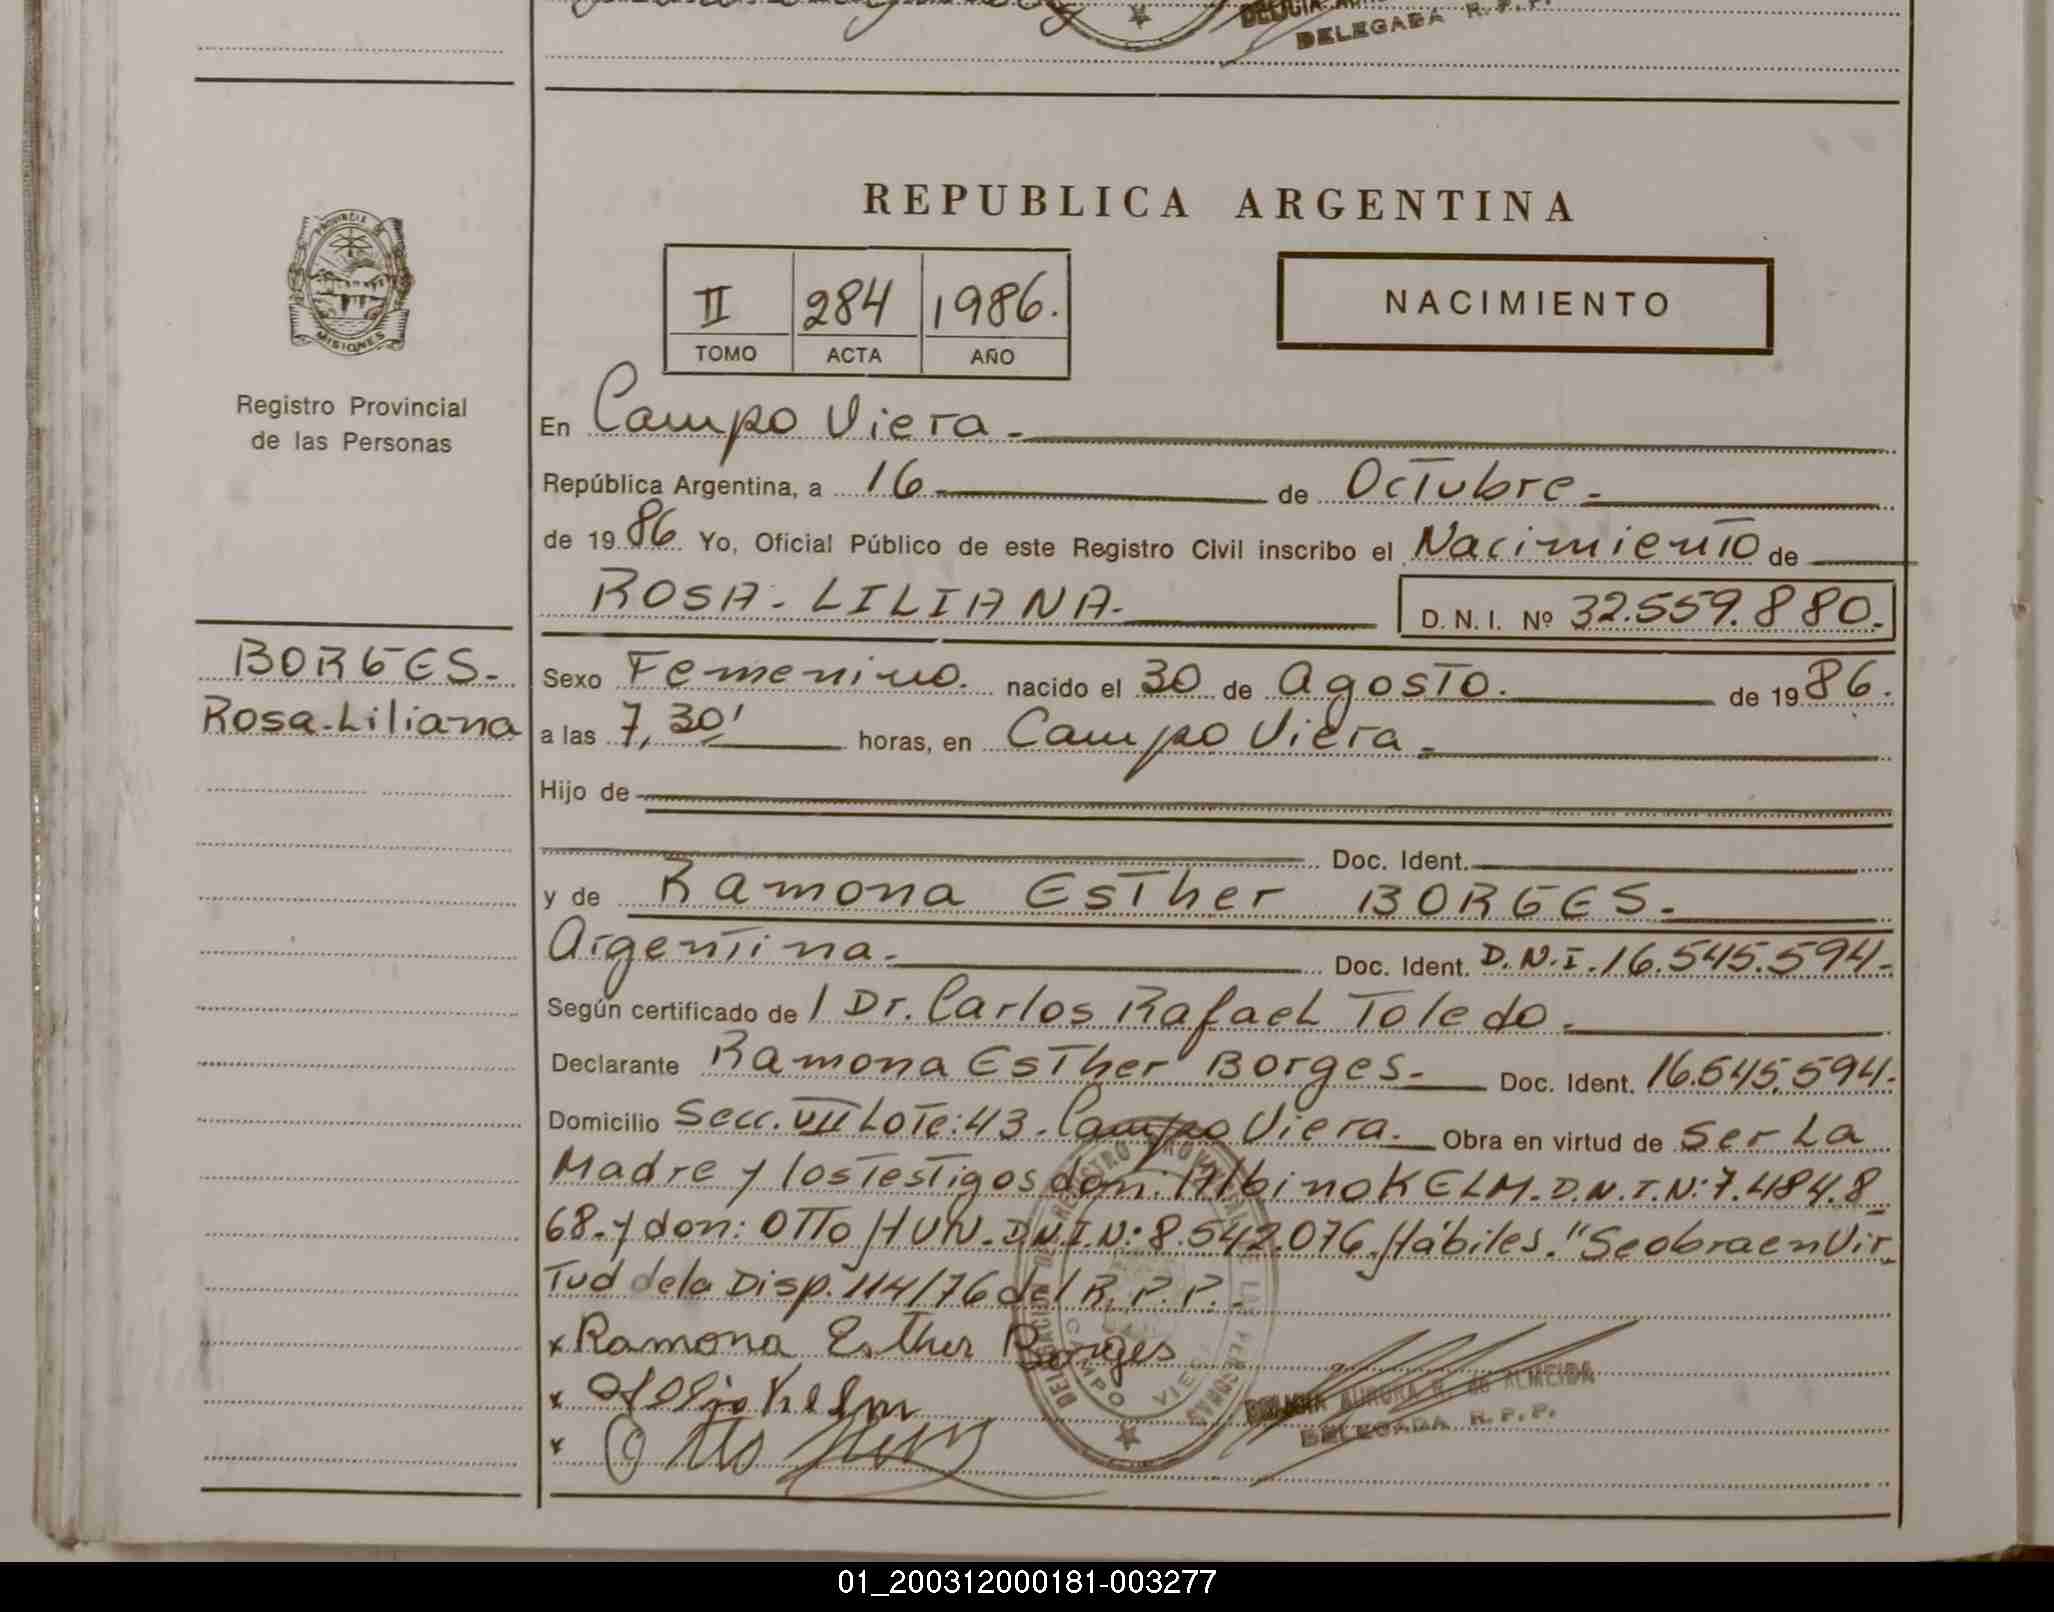 DELEGADA R.P.P.
REPUBLICA ARGENTINA
PROVINCIA DE
MISIONES
II 284 1986.
TOMO ACTA AÑO
NACIMIENTO
Registro Provincial
de las Personas
En Campo Viera.
República Argentina, a 16 de Octubre.
de 1986 Yo, Oficial Público de este Registro Civil inscribo el Nacimiento de
ROSA-LILIANA.
D. N. I. Nº 32.559.880.
BORGES.
Rosa-Liliana
Sexo Femenino. nacido el 30 de Agosto. de 1986.
a las 7,30' horas, en Campo Viera.
Hijo de
Doc. Ident.
y de Ramona Esther BORGES.
Argentina. Doc. Ident. D.N.I. 16.545.594.
Según certificado de l Dr. Carlos Rafael Toledo.
Declarante Ramona Esther Borges. Doc. Ident. 16.545.594.
Domicilio Secc. VII Lote: 43. Campo Viera. Obra en virtud de ser La
Madre y los Testigos don: Albino KELM. D.N.I.N: 7.484.8
68. y don: OTTO HUN. D.N.I.N: 8.542.076. Hábiles. "Se obra en Vir
Tud de la Disp. 114/76 del R.P.P.
x Ramona Esther Borges
x Albino Kelm
x Otto Hun
DELEGACION DE REGISTRO PROVINCIAL DE LAS PERSONAS
CAMPO VIERA
DELICIA AURORA R. de ALMEIDA
DELEGADA R.P.P.
01_200312000181-003277